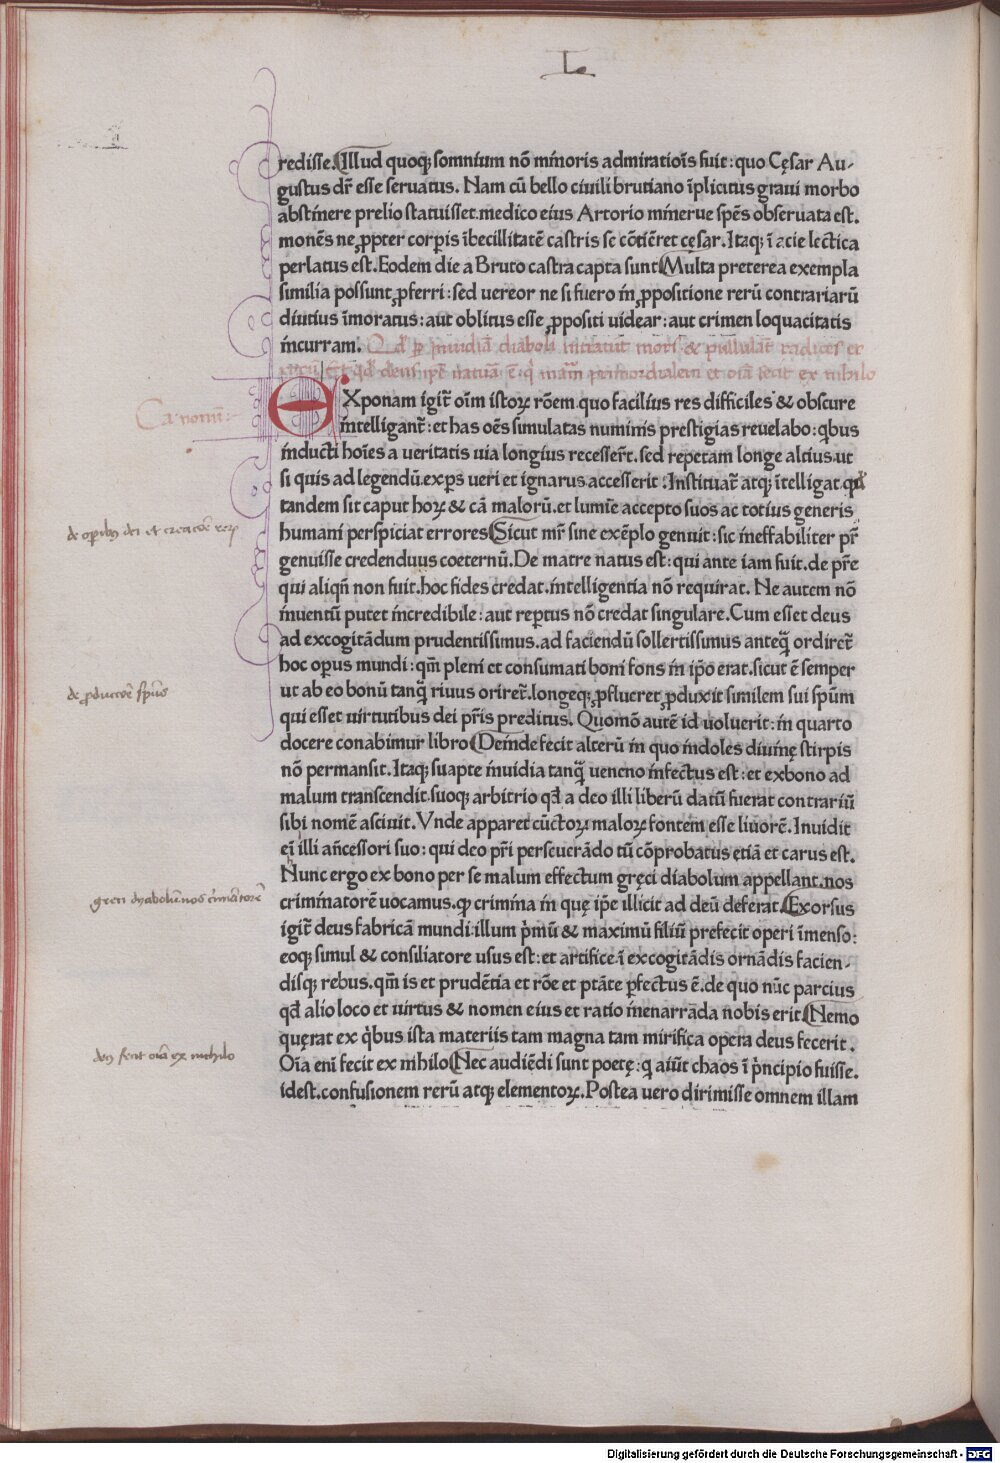 redisse. Illud quoqꝫ somnium nõ mĩoris admiratiõis fuit: quo Cęsar Au-
gustus dr̃ esse seruatus. Nam cũ bello ciuili brutiano ĩplicitus graui morbo
abstinere prelio statuisset. medico eius Artorio minerue spẽs obseruata est.
monẽs ne ꝓpter corpis ĩbecillitatẽ castris se cõtiẽret cęsar. Itaqꝫ ĩ acie lectica
perlatus est. Eodem die a Bruto castra capta sunt Multa preterea exempla
similia possunt ꝓferri: sed uereor ne si fuero in ꝓpositione rerũ contrariarũ
diutius ĩmoratus: aut oblitus esse ꝓpositi uidear: aut crimen loquacitatis
incurram. Qđ ꝑ inuidiã diaboli
primordialem et oĩa fecit ex nihilo
EXponam igit̃ oĩm istoꝝ rõem. quo facilius res difficiles & obscure
Ca nonũ
intelligant̃: et has oẽs simulatas numinis prestigias reuelabo: qbus
inducti hoĩes a ueritatis uia longius recesser̃t. sed repetam longe altius. ut
si quis ad legendũ. expꝑs ueri et ignarus accesserit. Instituat̃ atqꝫ ĩtelligat. qđ
tandem sit caput hoꝝ & cã malorũ. et lumĩe accepto suos ac totius generis
de oꝑibꝰ dei et creatõe reꝝ
humani perspiciat errores Sicut mr̃ sine exẽplo genuit: sic ineffabiliter pr̃
genuisse credendus coeternũ. De matre natus est: qui ante iam fuit. de pr̃e
qui aliqñ non fuit. hoc fides credat. intelligentia nõ requirat. Ne autem nõ
inuentũ putet incredibile: aut reptus nõ credat singulare. Cum esset deus
ad excogitãdum prudentissimus. ad faciendũ sollertissimus anteq̃ ordiret̃
hoc opus mundi: qm̃ pleni et consumati boni fons in ip̃o erat. sicut ẽ semper
de ꝓductõe sp̃us
ut ab eo bonũ tanq̃ riuus oriret̃. longeqꝫ ꝓflueret ꝓduxit similem sui sp̃um
qui esset uirtutibus dei pr̃is preditus. Quomõ autẽ id uoluerit: in quarto
docere conabimur libro Deinde fecit alterũ in quo indoles diuinę stirpis
nõ permansit. Itaqꝫ suapte inuidia tanq̃ ueneno infectus est: et exbono ad
malum transcendit. suoqꝫ arbitrio qđ a deo illi liberũ datũ fuerat contrariũ
sibi nomẽ asciuit. Vnde apparet cũctoꝝ maloꝝ fontem esse liuorẽ. Inuidit
ei illi añcessori suo: qui deo pr̃i perseuerãdo tũ cõprobatus etiã et carus est.
Nunc ergo ex bono per se malum effectum gręci diabolum appellant. nos
greci dyabolũ nos criminatorẽ
criminatorẽ uocamus. ꝙ crimina in quę ip̃e illicit ad deũ deferat. Exorsus
igit̃ deus fabricã mundi illum p̃mũ & maximũ filiũ prefecit operi ĩmenso:
eoqꝫ simul & consiliatore usus est: et artifice ĩ excogitãdis ornãdis facien-
disqꝫ rebus. qm̃ is et prudẽtia et rõe et ptãte pfectus ẽ. de quo nũc parcius
qđ alio loco et uirtus & nomen eius et ratio inenarrãda nobis erit. Nemo
quęrat ex q̃bus ista materiis tam magna tam mirifica opera deus fecerit.
deꝰ fecit oĩa ex nichilo
Oĩa eni fecit ex nihilo Nec audiẽdi sunt poetę: q aiũt chaos ĩ p̃ncipio fuisse.
idest. confusionem rerũ atqꝫ elementoꝝ. Postea uero dirimisse omnem illam
Digitalisierung gefördert durch die Deutsche Forschungsgemeinschaft - DFG